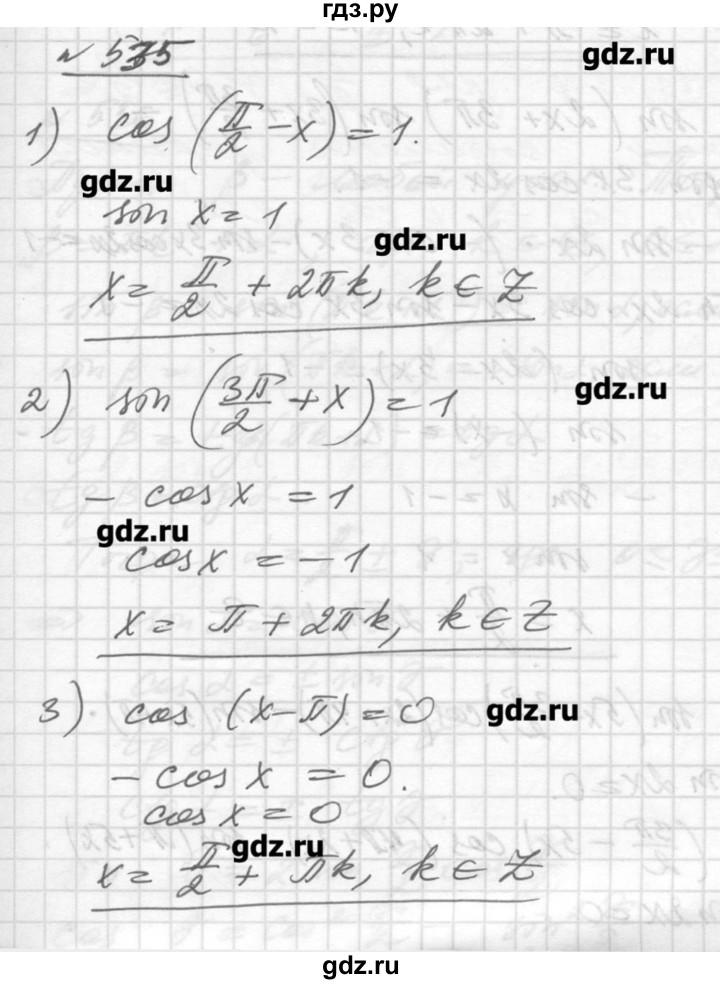 гдз.ру
№ 535
gdz.ru
1) cos (π/2 − x) = 1.
gdz.ru
sin x = 1
gdz.ru
x = π/2 + 2πk, k ∈ Z
2) sin (3π/2 + x) = 1
gdz.ru
− cos x = 1
gdz.ru
cos x = −1
x = π + 2πk, k ∈ Z
3) cos (x − π) = 0
gdz.ru
− cos x = 0.
cos x = 0
gdz.ru
x = π/2 + πk, k ∈ Z
gdz.ru